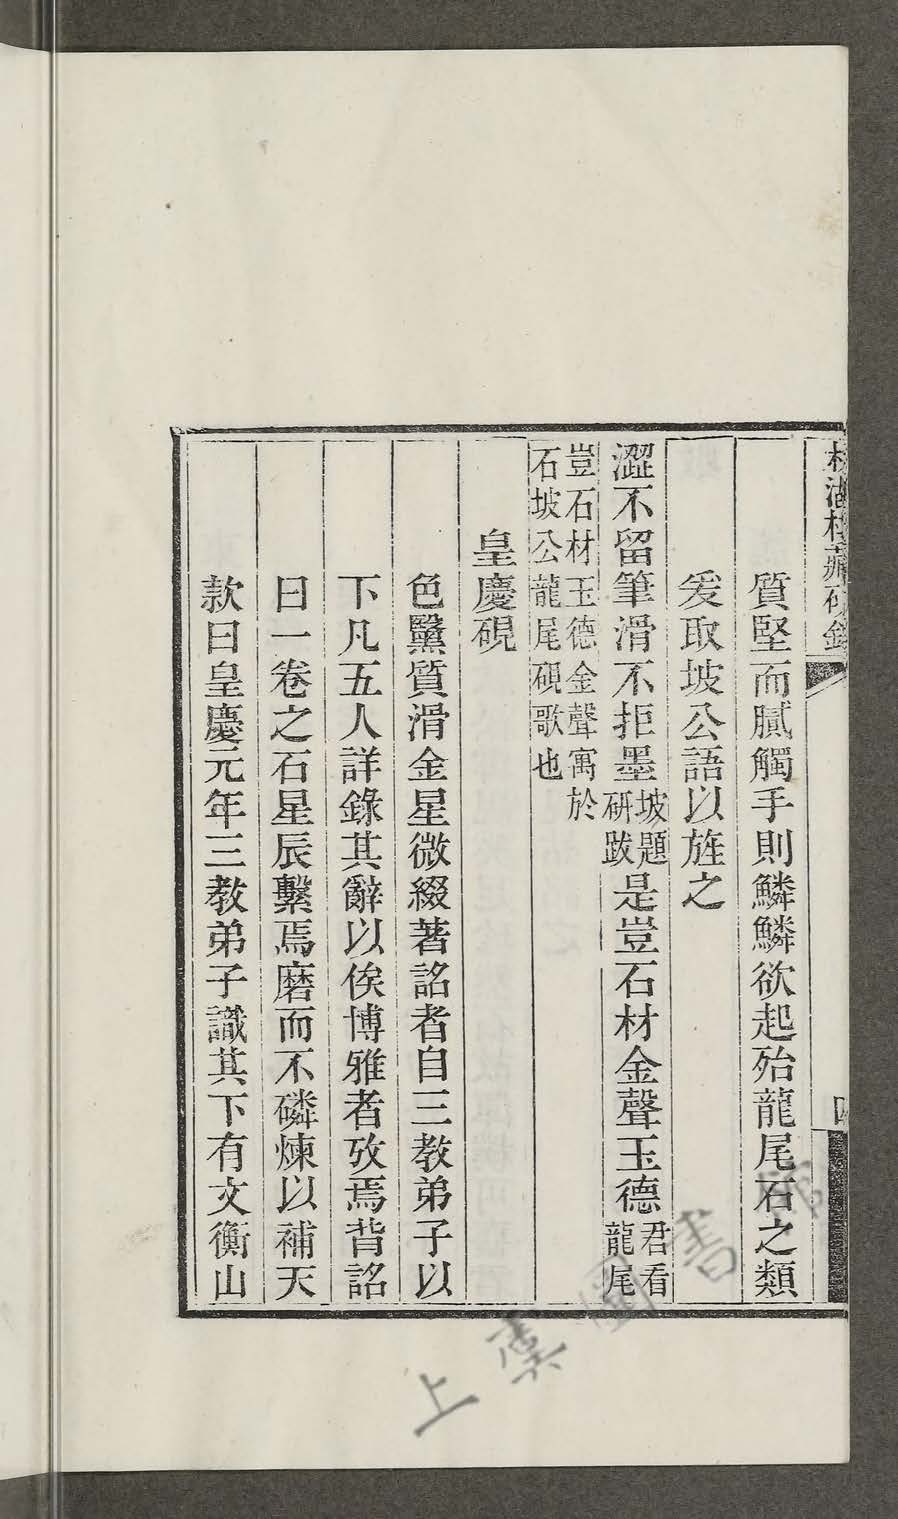 質堅而膩觸手則鱗鱗欲起殆龍尾石之類
爰取坡公語以旌之
澀不留筆滑不拒墨坡題研跋是豈石材金聲玉德君看龍尾
豈石材玉德金聲寓於
石坡公龍尾硯歌也
皇慶硯
色黳質滑金星微綴著詺者自三教弟子以
下凡五人詳錄其辭以俟博雅者攷焉背詺
曰一卷之石星辰繫焉磨而不磷煉以補天
款曰皇慶元年三教弟子識其下有文衡山
上虞圖書館